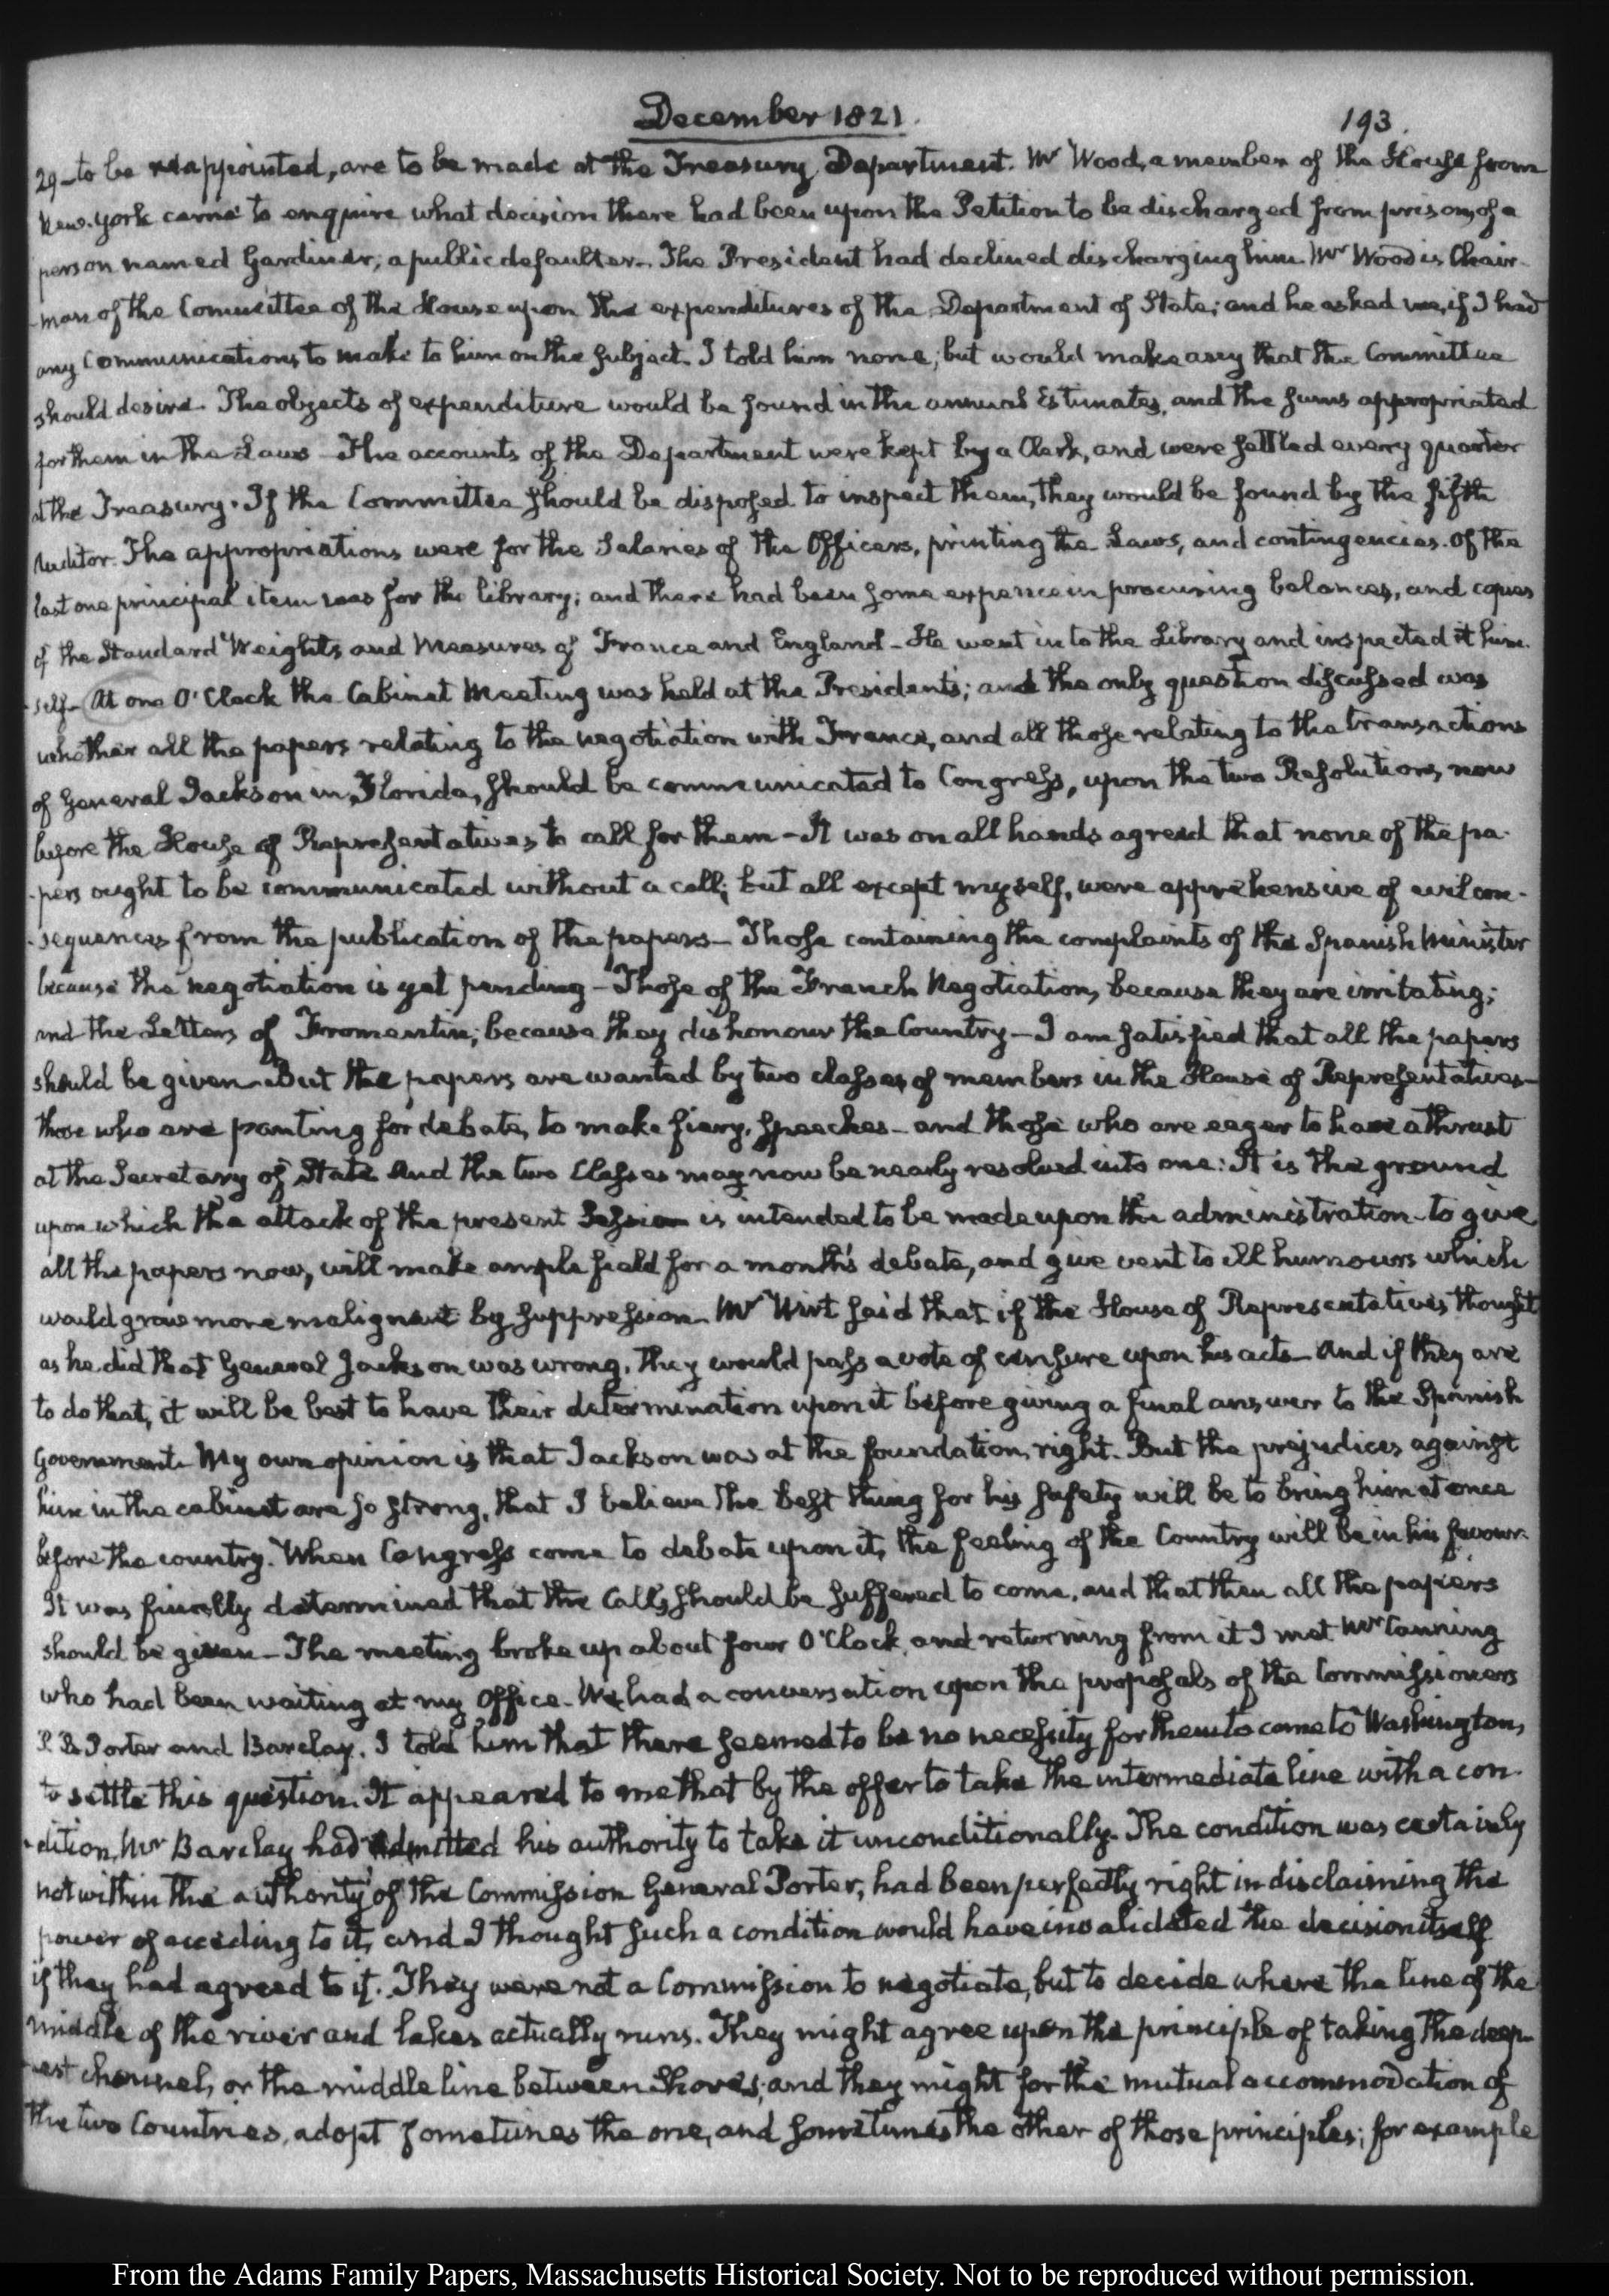 December 1821.
193.
29 - to be reappointed, are to be made at the Treasury Department. Mr Wood, a member of the House from
New-York came to enquire what decision there had been upon the Petition to be discharged from prison, of a
person named Gardiner; a public defaulter. The President had declined discharging him. Mr Wood is Chair-
-man of the Committee of the House upon the expenditures of the Department of State; and he asked me, if I had
any Communications to make to him on the subject. I told him none; but would make any that the Committee
should desire. The objects of expenditure would be found in the annual Estimates, and the sums appropriated
for them in the Laws - The accounts of the Department were kept by a Clerk, and were settled every quarter
at the Treasury. If the Committee should be disposed to inspect them, they would be found by the fifth
Auditor. The appropriations were for the Salaries of the Officers, printing the Laws, and contingencies. Of the
last one principal item was for the library; and there had been some expence in procuring balances, and copies
of the Standard Weights and Measures of France and England - He went in to the Library and inspected it him-
-self. At one O'Clock the Cabinet Meeting was held at the President's; and the only question discussed was
whether all the papers relating to the negotiation with France, and all those relating to the transactions
of General Jackson in Florida, should be communicated to Congress, upon the two Resolutions, now
before the House of Representatives to call for them - It was on all hands agreed that none of the pa-
-pers ought to be communicated without a call; but all except myself, were apprehensive of evil con-
-sequences from the publication of the papers - Those containing the complaints of the Spanish Minister
because the negotiation is yet pending - Those of the French Negotiation, because they are irritating;
and the Letters of Fromentin; because they dishonour the Country - I am satisfied that all the papers
should be given - But the papers are wanted by two classes of members in the House of Representatives -
those who are panting for debate, to make fiery speeches - and those who are eager to have a thrust
at the Secretary of State. And the two Classes may now be nearly resolved into one: It is the ground
upon which the attack of the present Session is intended to be made upon the administration - to give
all the papers now, will make ample field for a month's debate, and give vent to ill humours which
would grow more malignant by suppression. Mr Wirt said that if the House of Representatives thought
as he did that General Jackson was wrong, they would pass a vote of censure upon his acts - And if they are
to do that, it will be best to have their determination upon it before giving a final answer to the Spanish
Government. My own opinion is that Jackson was at the foundation, right. But the prejudices against
him in the cabinet are so strong, that I believe the best thing for his safety will be to bring him at once
before the country. When Congress come to debate upon it, the feeling of the Country will be in his favour.
It was finally determined that the Calls should be suffered to come, and that then all the papers
should be given - The meeting broke up about four O'Clock, and returning from it I met Mr Canning
who had been waiting at my Office - We had a conversation upon the proposals of the Commissioners
P. B. Porter and Barclay. I told him that there seemed to be no necessity for them to come to Washington,
to settle this question. It appeared to me that by the offer to take the intermediate line with a con-
-dition, Mr Barclay had admitted his authority to take it unconditionally. The condition was certainly
not within the authority of the Commission General Porter, had been perfectly right in disclaiming the
power of acceding to it, and I thought such a condition would have invalidated the decision itself
if they had agreed to it. They were not a Commission to negotiate, but to decide where the line of the
middle of the river and lakes actually runs. They might agree upon the principle of taking the deep-
-est channel, or the middle line between Shores; and they might for the mutual accommodation of
the two Countries, adopt sometimes the one, and sometimes the other of those principles; for example
From the Adams Family Papers, Massachusetts Historical Society. Not to be reproduced without permission.